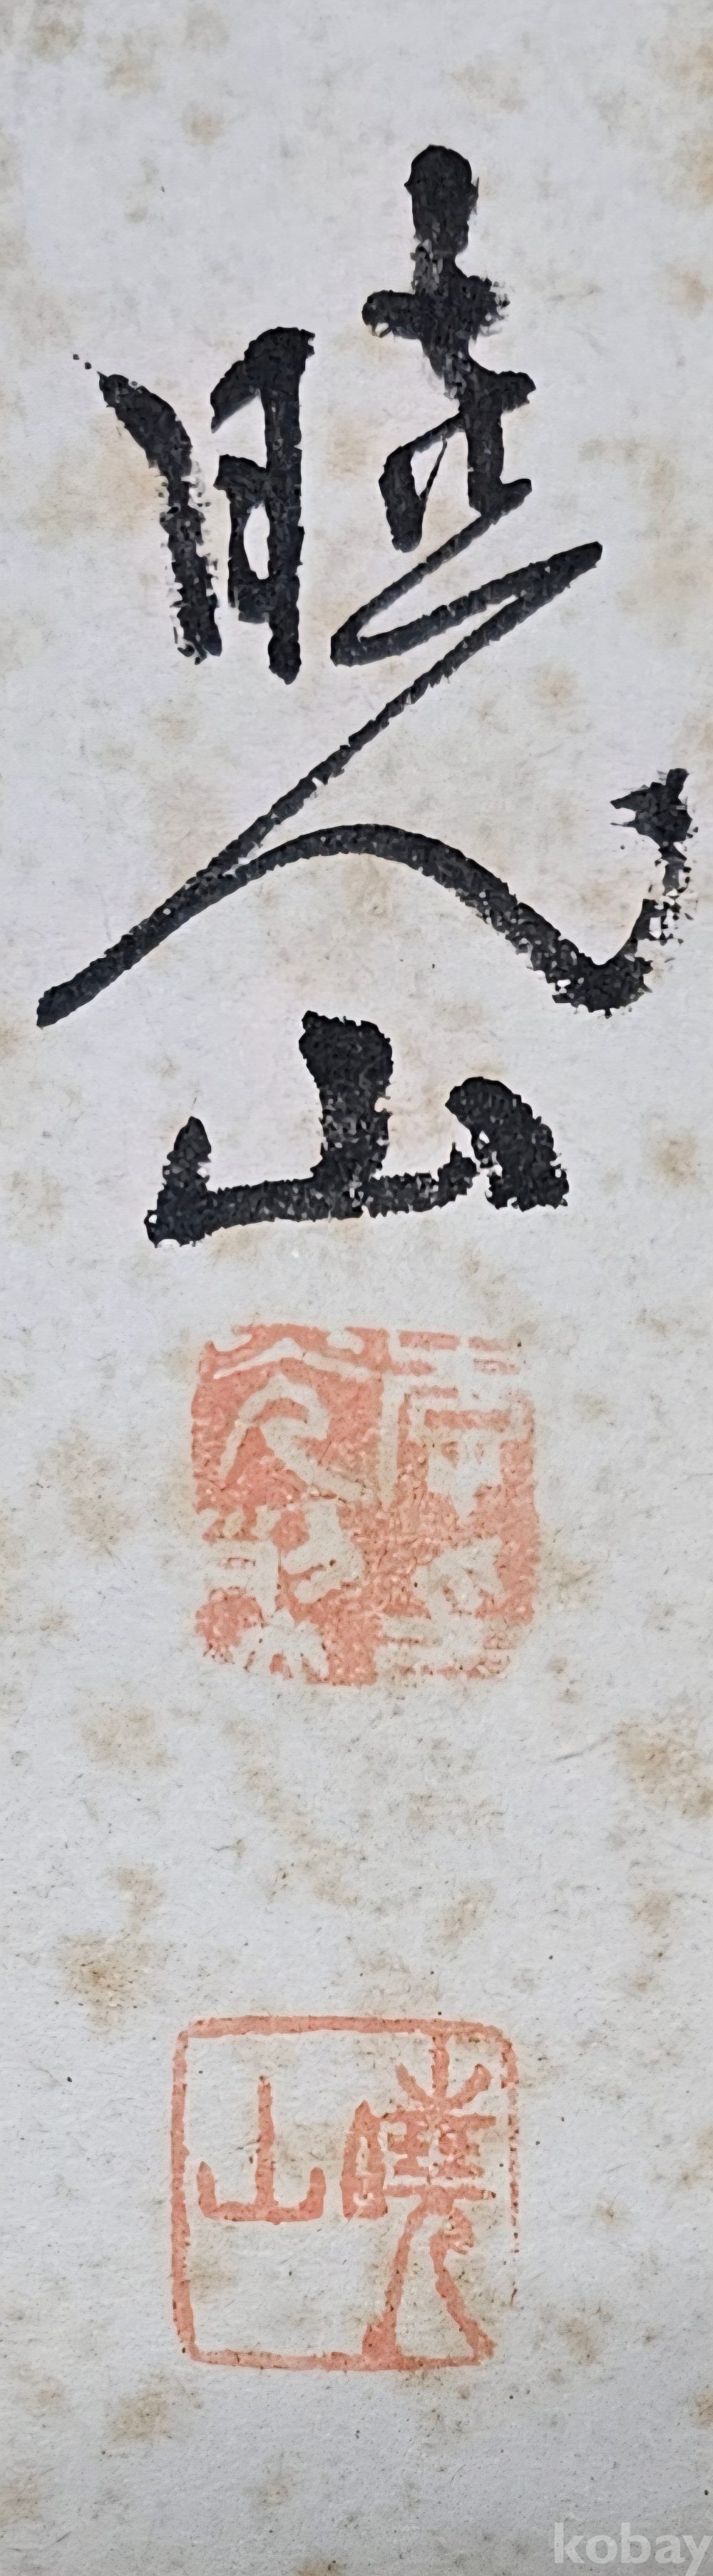 曉山
曉山
kobay